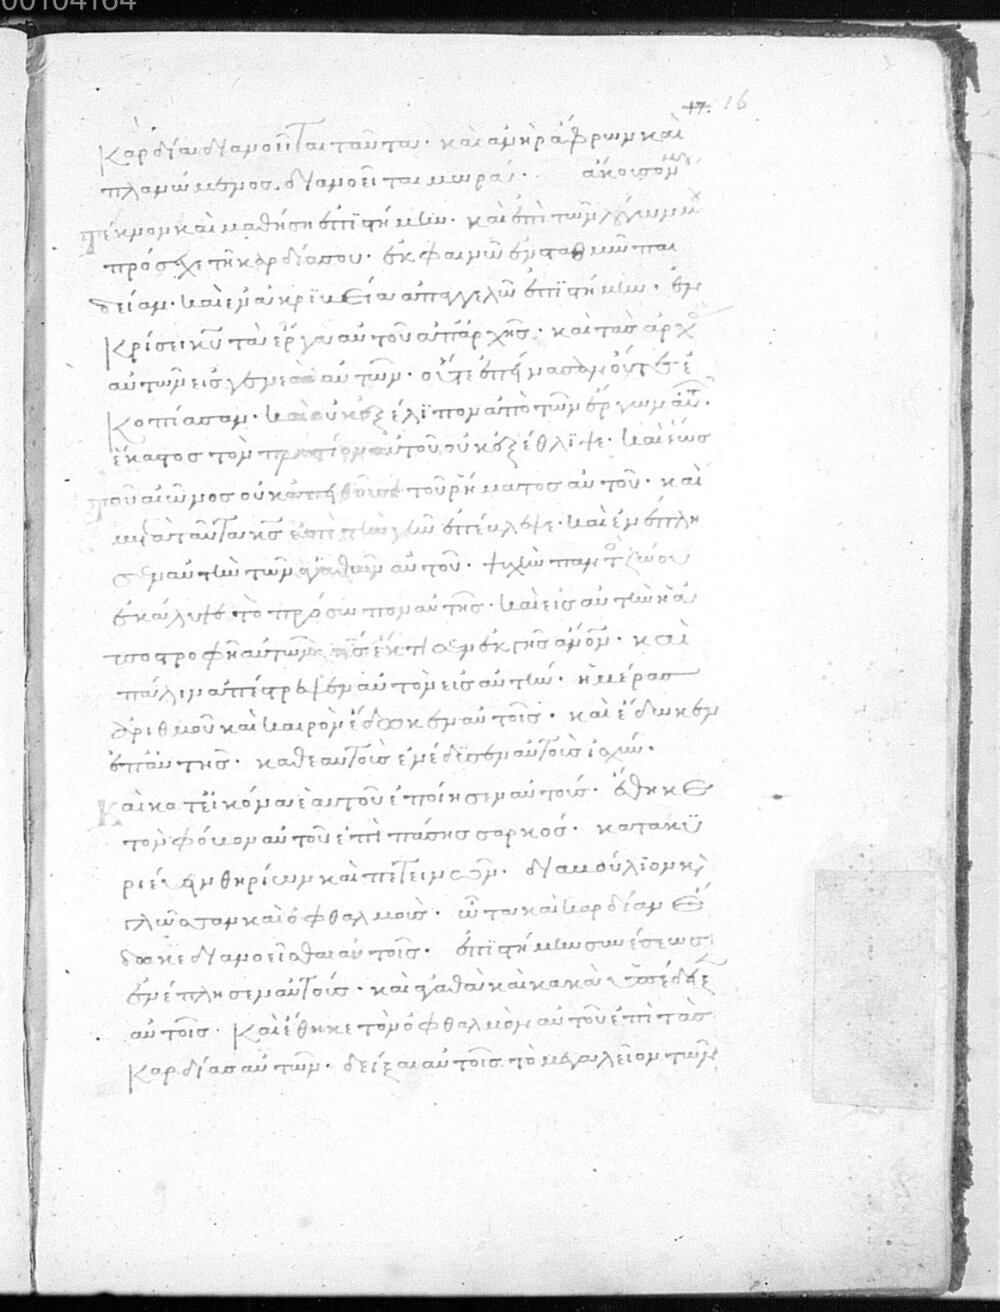 00104164
17. 16
καρδίαι διανοεῖται ταῦτα· καὶ ἀνὴρ ἄφρων καὶ
πλανώμενος διανοεῖται μωρά· ἄκουσόν μου
τέκνον καὶ μάθησῃ ἐπιστήμην· καὶ ἐπὶ τῶν λόγων μου
πρόσχε τῇ καρδία σου· ἐκφανῶ ἐν σταθμῶ παι
δείαν· καὶ ἐν ἀκριβεία ἀπαγγελῶ ἐπιστήμην· ἐν
κρίσει κυ τὰ ἔργα αὐτοῦ ἀπαρχῆς· καὶ τὰς ἀρχὰς
αὐτῶν εἰς γενεὰς αὐτῶν· οὔτε ἐπείνασαν οὔτε ἐ
κοπίασαν· καὶ οὐκ ἐξέλιπον ἀπὸ τῶν ἔργων αὐτ·
ἕκαστος τὸν πλησίον αὐτοῦ οὐκ ἐξέθλιψε· καὶ ἕως
τοῦ αἰῶνος οὐκ ἀπειθήσει τοῦ ῥήματος αὐτοῦ· καὶ
μετὰ ταῦτα κς ἐπὶ τὴν γῆν ἐπέβλεψε· καὶ ἐνέπλη
σεν αὐτὴν τῶν ἀγαθῶν αὐτοῦ· ψυχὴν παντὸς ζώου
ἐκάλυψε τὸ πρόσωπον αὐτῆς· καὶ εἰς αὐτὴν ἡ ἀ
ποστροφὴ αὐτῶν· κς ἔκτισεν ἐκ γῆς ἄνον· καὶ
πάλιν ἀπέστρεψεν αὐτὸν εἰς αὐτήν· ἡμέρας
ἀριθμοῦ καὶ καιρὸν ἔδωκεν αὐτοῖς· καὶ ἔδωκεν
ἐπ' αὐτῆς· καθ' εαυτοὺς ἐνέδυσεν αὐτοὺς ἰσχύν·
καὶ κατ' εἰκόνα ἑαυτοῦ ἐποίησεν αὐτούς· ἔθηκε
τὸν φόβον αὐτοῦ ἐπὶ πάσης σαρκός· κατακυ
ριεύειν θηρίων καὶ πετεινῶν· διαβούλιον καὶ
γλῶσσαν καὶ ὀφθαλμοὺς· ὦτα καὶ καρδίαν ἔ
δωκε διανοεῖσθαι αὐτοῖς· ἐπιστήμην συνέσεως
ἐνέπλησεν αὐτούς· καὶ ἀγαθὰ καὶ κακὰ ὑπέδειξ
αὐτοῖς· Καὶ ἔθηκε τὸν ὀφθαλμὸν αὐτοῦ ἐπὶ τὰς
καρδίας αὐτῶν· δεῖξαι αὐτοῖς τὸ μεγαλεῖον τῶν